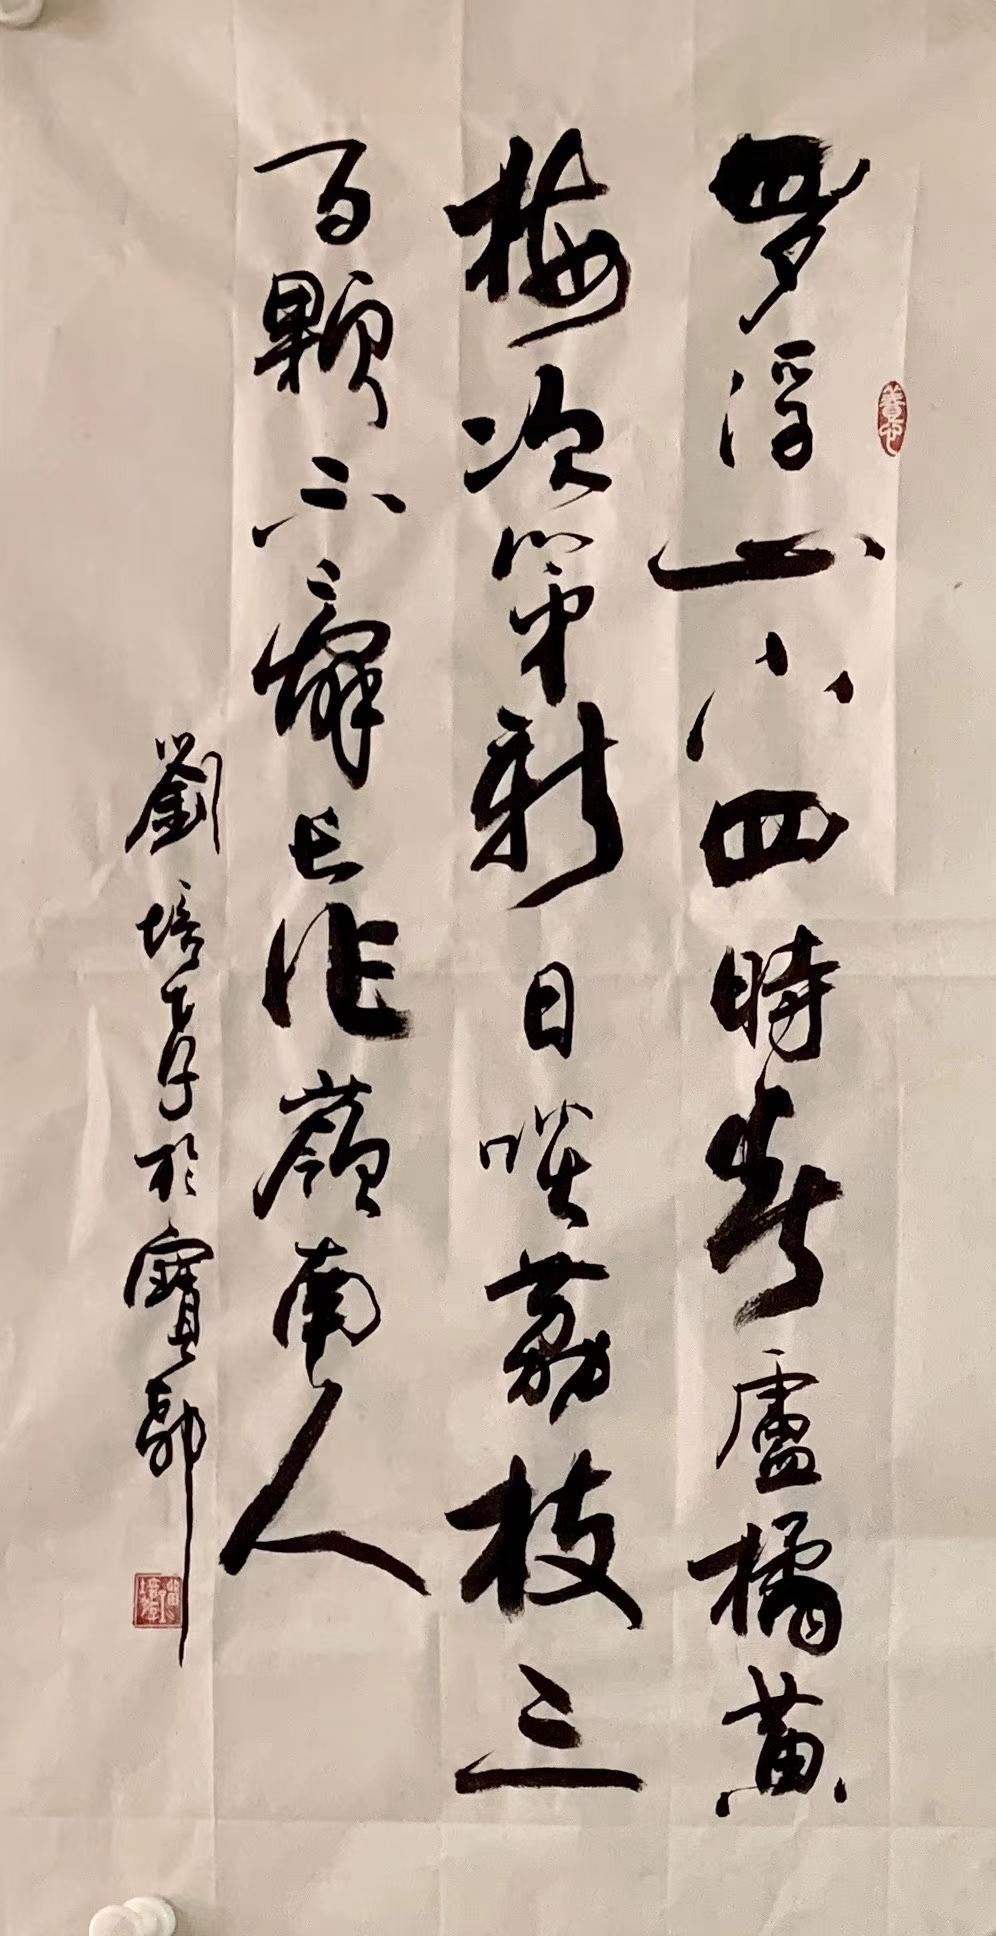 罗浮山下四時春盧橘黃
梅次第新日啖荔枝三
百顆不辭長作嶺南人
劉培孝於寶郭